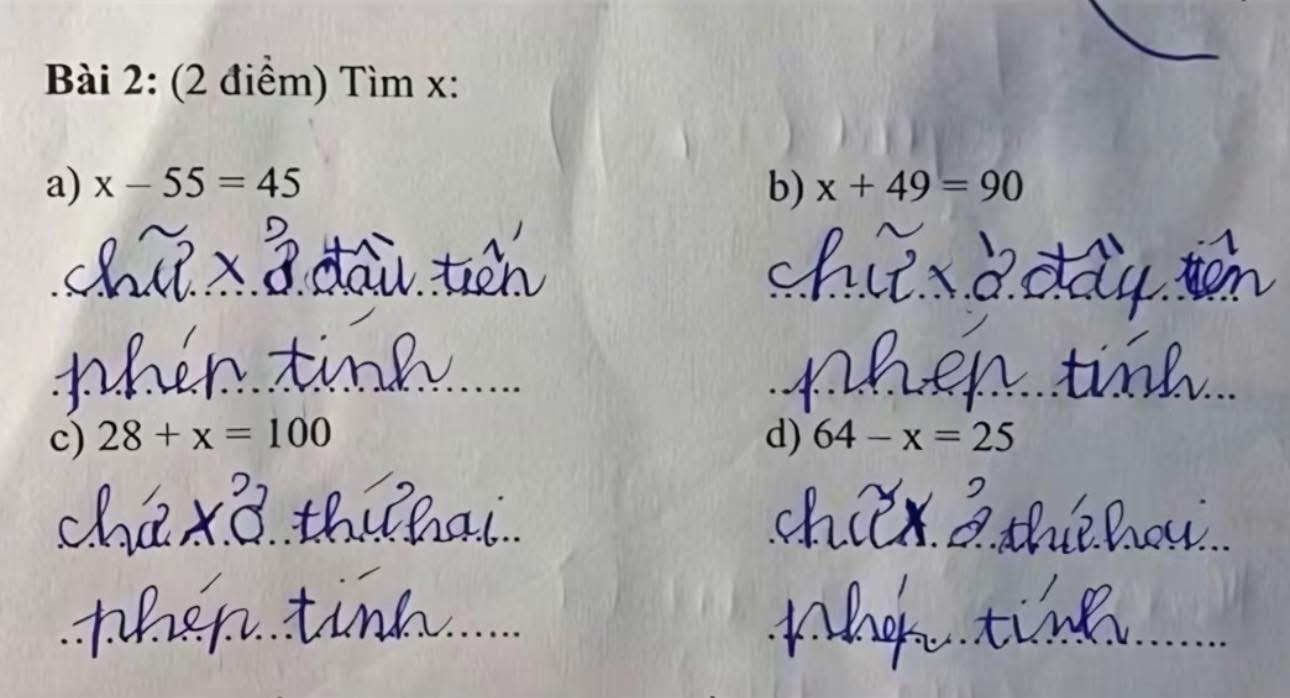 Bài 2: (2 điểm) Tìm x:
a) x – 55 = 45
b) x + 49 = 90
chữ x ở đầu tiến
chữ x ở đầy tiên
phép tính
phép tính
c) 28 + x = 100
d) 64 – x = 25
chứ x ở thứ hai
chữ x ở thứ hai
phép tính
phép tính